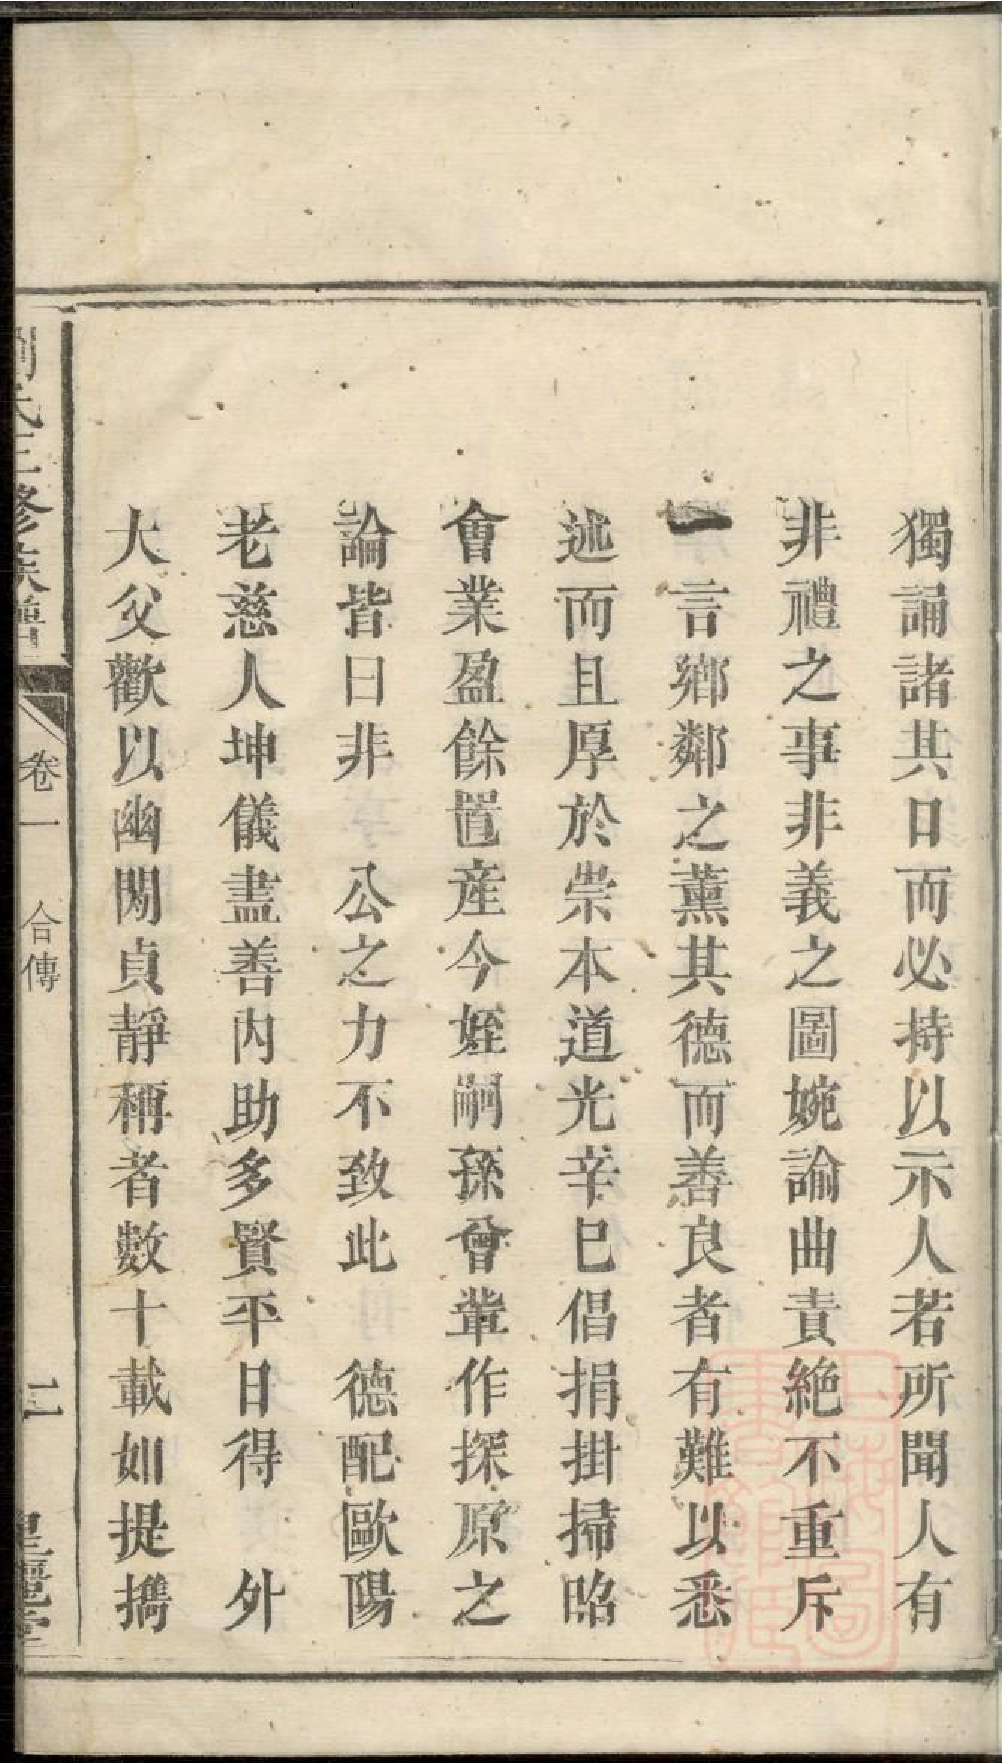 獨誦諸其口而必持以示人若所聞人有
非禮之事非義之圖婉諭曲責絶不重斥
一言鄉鄰之薰其德而善良者有難以悉
述而且厚於崇本道光辛巳倡捐掛掃昭
會業盈餘置産今姪嗣孫曾輩作探原之
論皆曰非　公之力不致此　德配歐陽
老慈人坤儀盡善內助多賢平日得　外
大父歡以幽閒貞靜稱者數十載如提攜
劉氏三修族譜
卷一　合傳
二